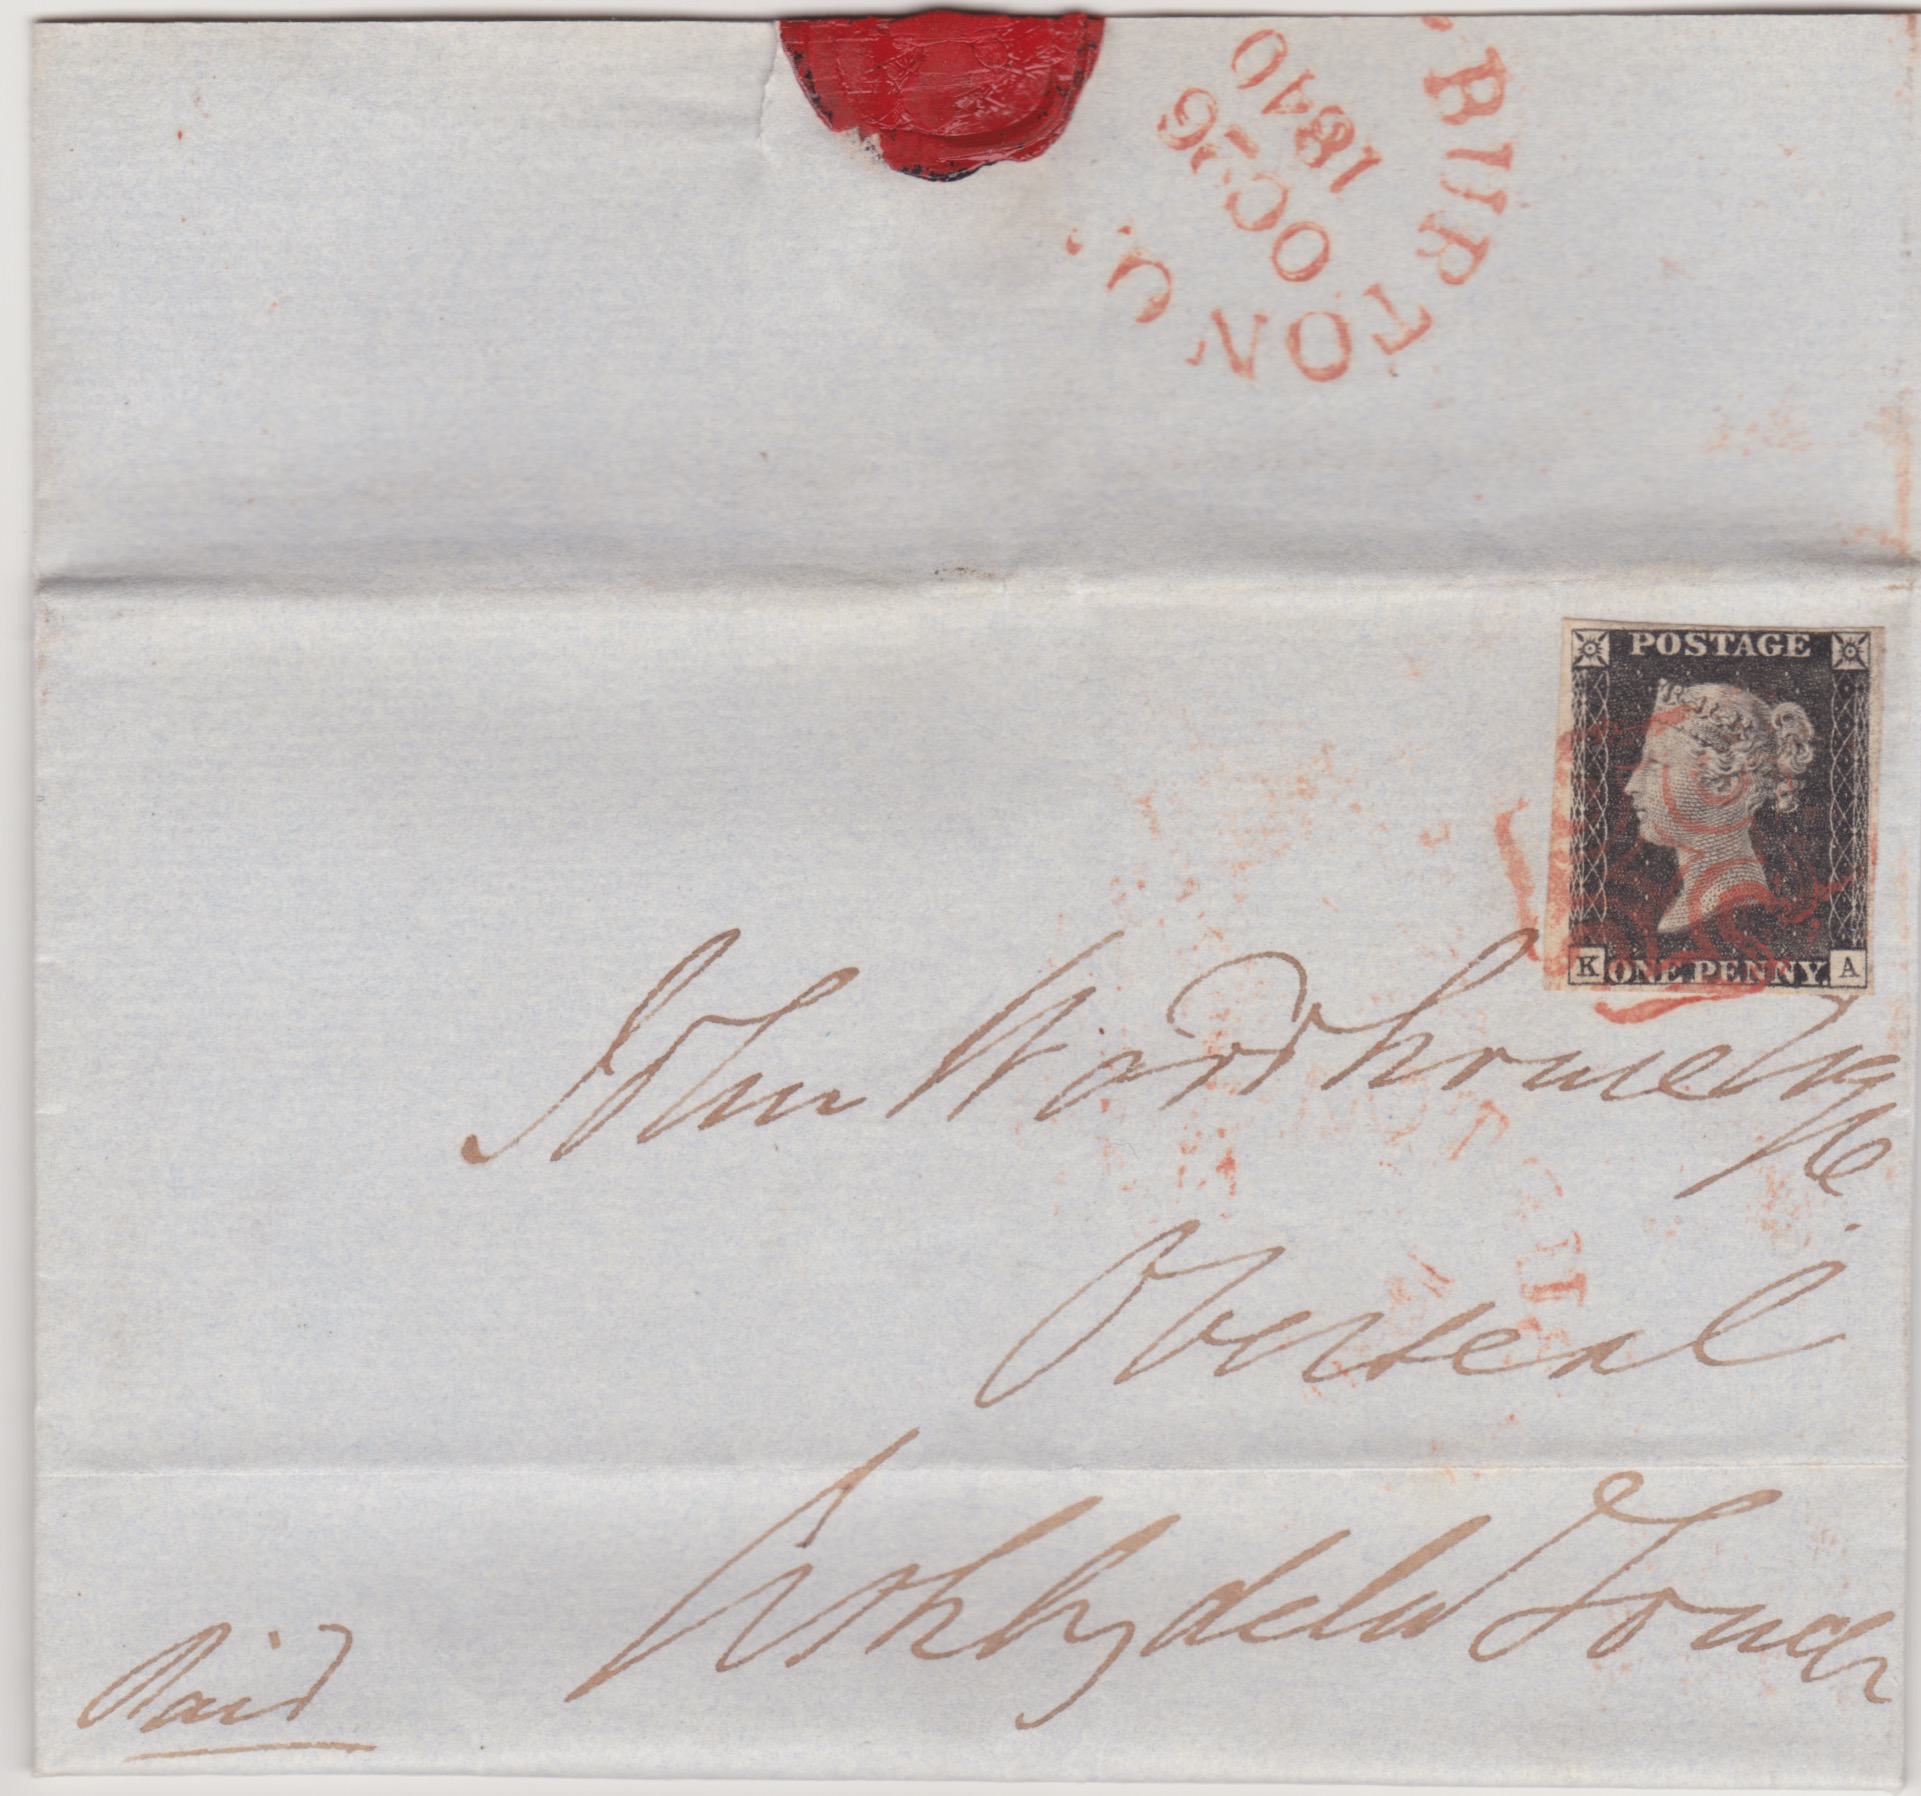 BURTON
OC 26
1840
POSTAGE
K ONE PENNY. A
John
Overseal
Ashby de la Zouch
Paid